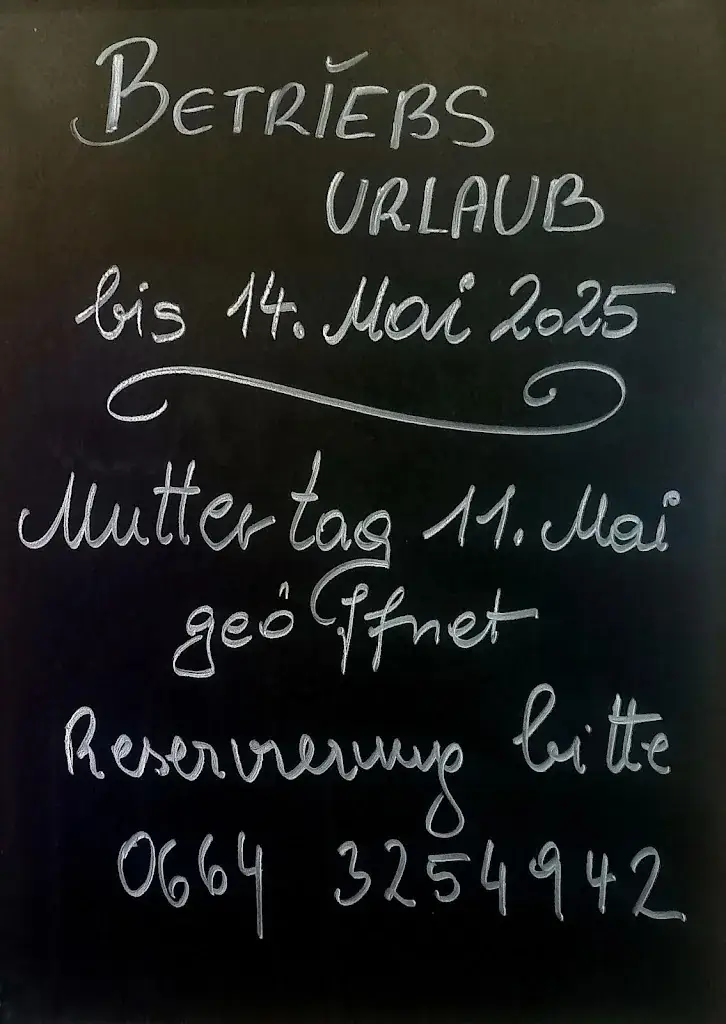 BETRIEBS
URLAUB
bis 14. Mai 2025
Muttertag 11. Mai
geöffnet
Reservierung bitte
0664 3254942